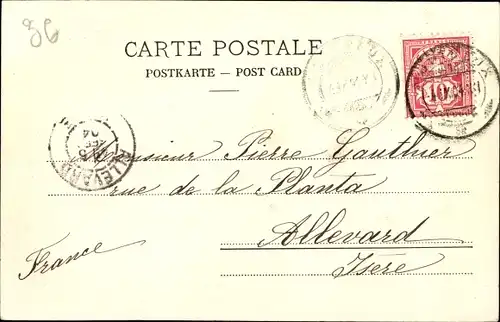 56
CARTE POSTALE
POSTKARTE — POST CARD
ALLEVARD
04
Monsieur Pierre Gauthier
rue de la Planta
Allevard
Isere
France